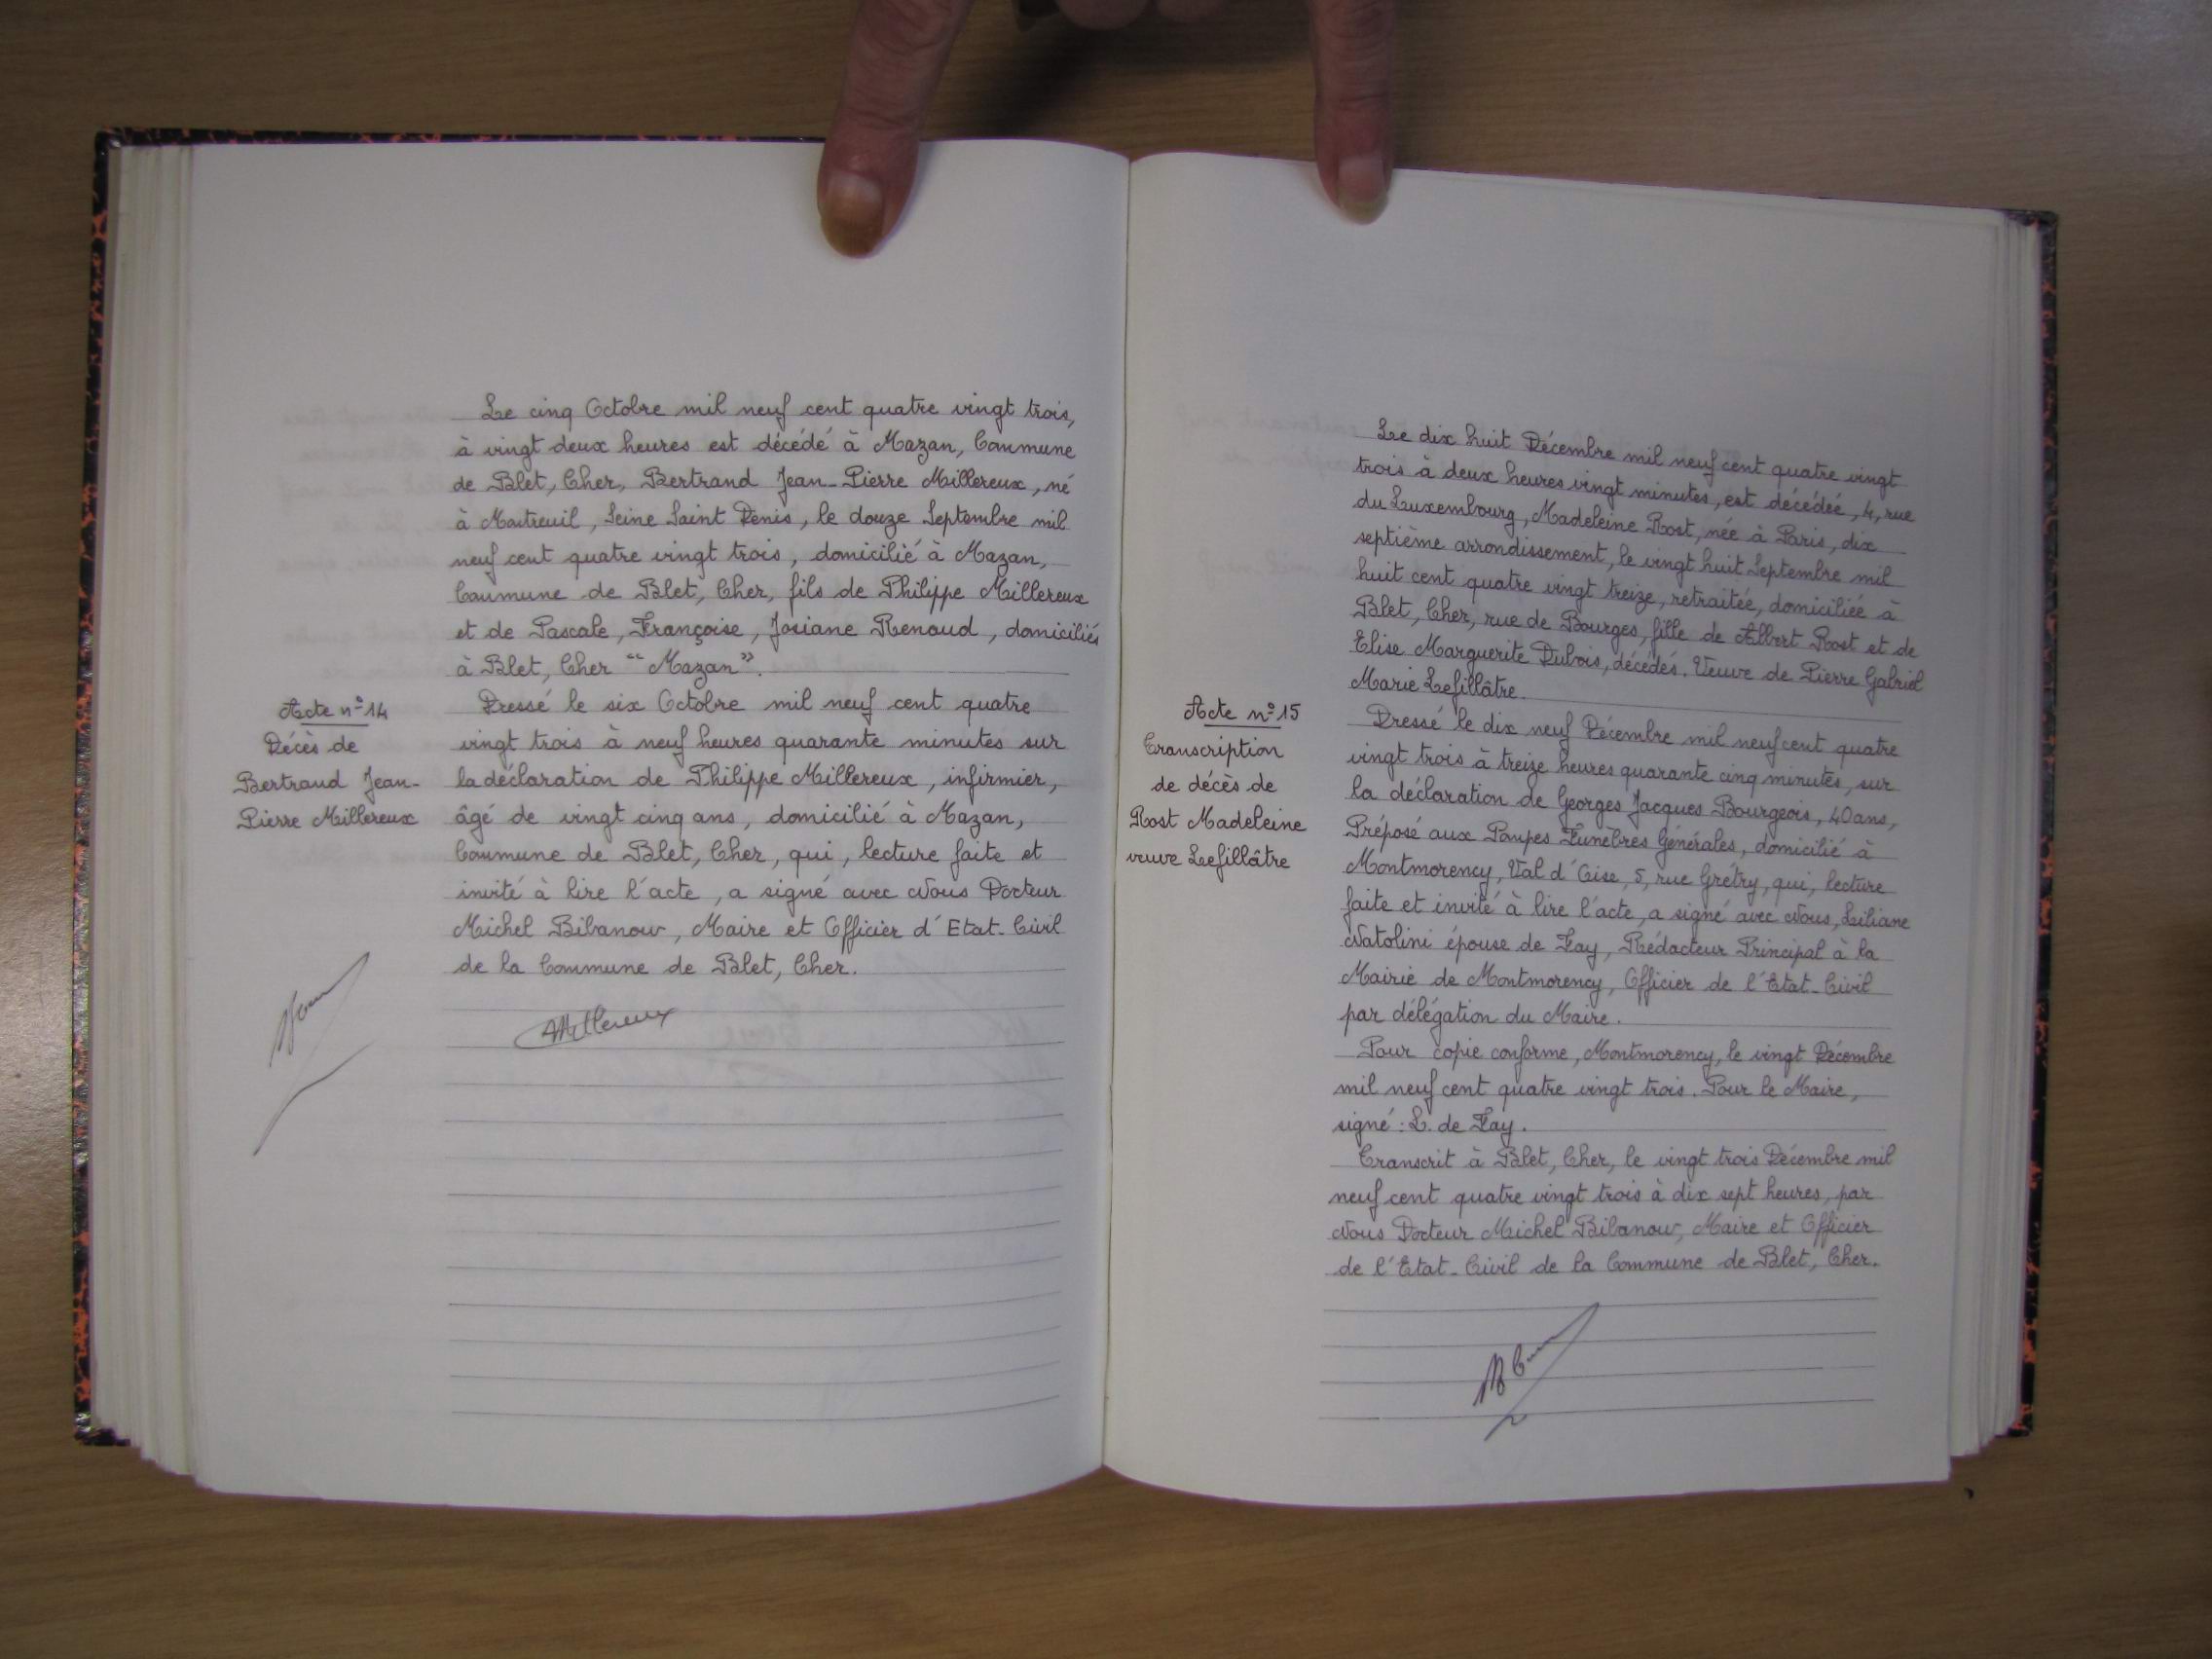 Le cinq Octobre mil neuf cent quatre vingt trois,
à vingt deux heures est décédé à Mazan, Commune
de Blet, Cher, Bertrand Jean-Pierre Millereux, né
à Montreuil, Seine Saint Denis, le douze Septembre mil
neuf cent quatre vingt trois, domicilié à Mazan,
Commune de Blet, Cher, fils de Philippe Millereux
et de Pascale, Françoise, Josiane Renaud, domiciliés
à Blet, Cher "Mazan".
Acte n° 14
Décès de
Bertrand Jean-
Pierre Millereux
Dressé le six Octobre mil neuf cent quatre
vingt trois à neuf heures quarante minutes sur
la déclaration de Philippe Millereux, infirmier,
âgé de vingt cinq ans, domicilié à Mazan,
Commune de Blet, Cher, qui, lecture faite et
invité à lire l'acte, a signé avec Nous Docteur
Michel Bibanow, Maire et Officier d'Etat-Civil
de la Commune de Blet, Cher.
Millereux
Le dix huit Décembre mil neuf cent quatre vingt
trois à deux heures vingt minutes, est décédée, 4, rue
du Luxembourg, Madeleine Rost, née à Paris, dix
septième arrondissement, le vingt huit Septembre mil
huit cent quatre vingt treize, retraitée, domiciliée à
Blet, Cher, rue de Bourges, fille de Albert Rost et de
Elise Marguerite Dubois, décédés. Veuve de Pierre Gabriel
Marie Lefillâtre.
Acte n° 15
Transcription
de décès de
Rost Madeleine
veuve Lefillâtre
Dressé le dix neuf Décembre mil neuf cent quatre
vingt trois à treize heures quarante cinq minutes, sur
la déclaration de Georges Jacques Bourgeois, 40 ans,
Préposé aux Pompes Funèbres Générales, domicilié à
Montmorency, Val d'Oise, 5, rue Grétry, qui, lecture
faite et invité à lire l'acte, a signé avec Nous, Liliane
Natolini épouse de Fay, Rédacteur Principal à la
Mairie de Montmorency, Officier de l'Etat-Civil
par délégation du Maire.
Pour copie conforme, Montmorency, le vingt Décembre
mil neuf cent quatre vingt trois. Pour le Maire,
signé : L. de Fay.
Transcrit à Blet, Cher, le vingt trois Décembre mil
neuf cent quatre vingt trois à dix sept heures, par
Nous Docteur Michel Bibanow, Maire et Officier
de l'Etat-Civil de la Commune de Blet, Cher.